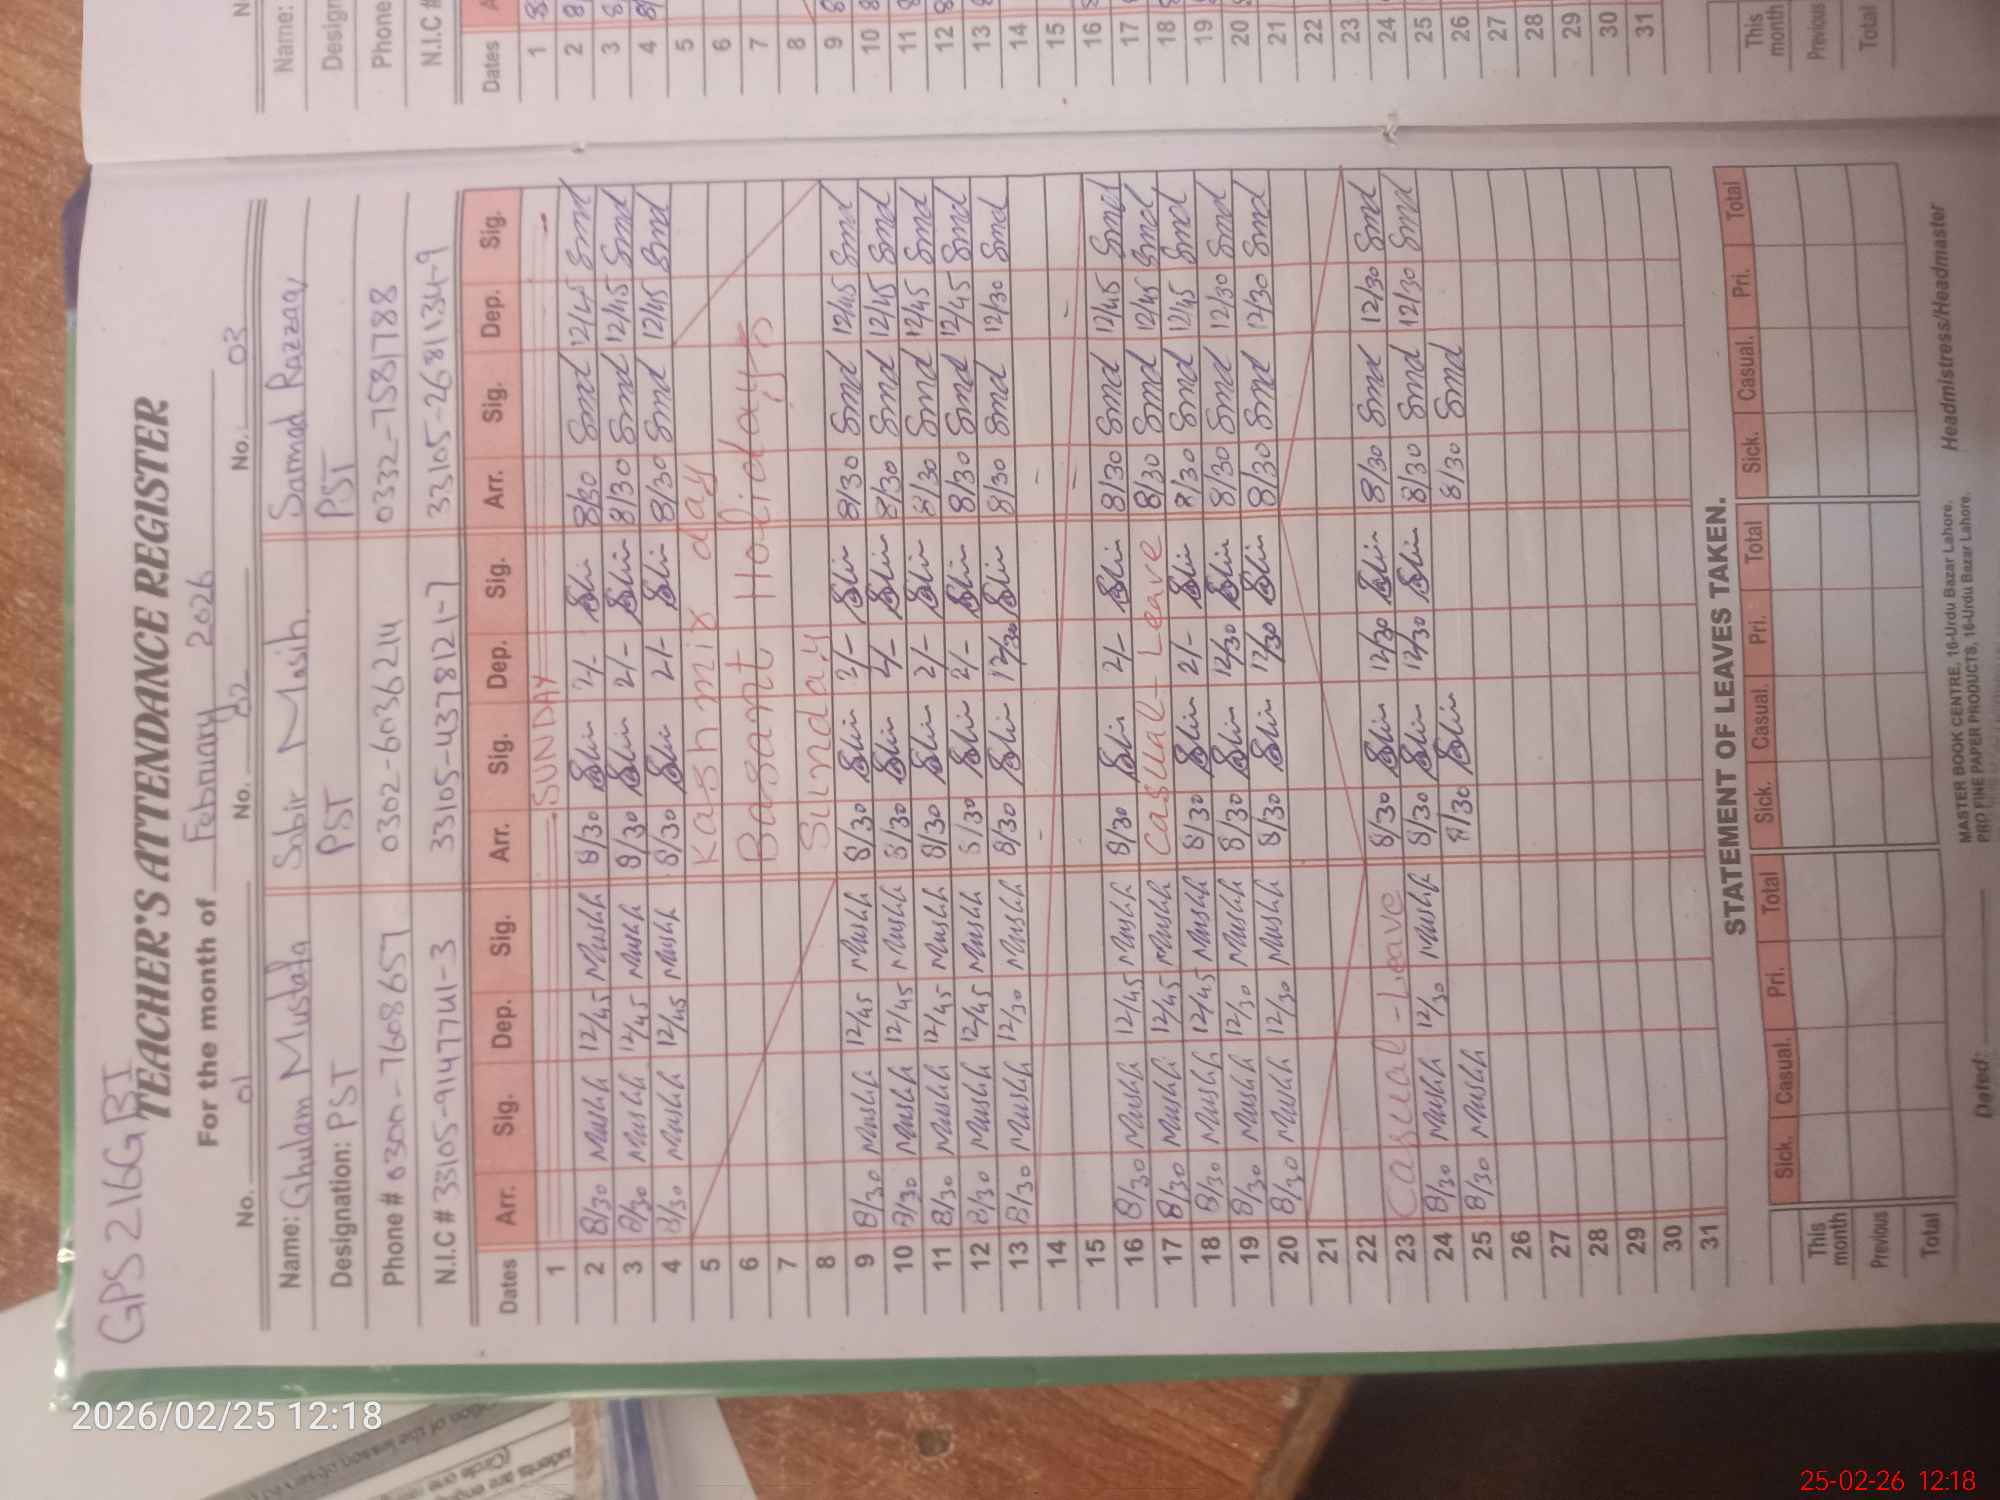 GPS 216 GB I
TEACHER'S ATTENDANCE REGISTER
For the month of February 2026
No. 01 No. 02 No. 03
Name: Ghulam Mustafa Sabir Masih Samad Razzaq
Designation: PST PST PST
Phone # 0300-7608657 0302-6036214 0332-7581788
N.I.C # 33105-9147741-3 33105-4378121-7 33105-2681134-9
Dates Arr. Sig. Dep. Sig. Arr. Sig. Dep. Sig. Arr. Sig. Dep. Sig.
1 SUNDAY
2 8/30 12/45 8/30 2/- 8/30 Smd 12/45 Smd
3 8/30 12/45 8/30 2/- 8/30 Smd 12/45 Smd
4 8/30 12/45 8/30 2/- 8/30 Smd 12/45 Smd
5 Kashmir day
6 Basant Holidays
7
8 Sunday
9 8/30 12/45 8/30 2/- 8/30 Smd 12/45 Smd
10 8/30 12/45 8/30 2/- 8/30 Smd 12/45 Smd
11 8/30 12/45 8/30 2/- 8/30 Smd 12/45 Smd
12 8/30 12/45 8/30 2/- 8/30 Smd 12/45 Smd
13 8/30 12/30 8/30 12/30 8/30 Smd 12/30 Smd
14
15
16 8/30 12/45 8/30 2/- 8/30 Smd 12/45 Smd
17 8/30 12/45 Casual-Leave 8/30 Smd 12/45 Smd
18 8/30 12/45 8/30 2/- 8/30 Smd 12/45 Smd
19 8/30 12/30 8/30 12/30 8/30 Smd 12/30 Smd
20 8/30 12/30 8/30 12/30 8/30 Smd 12/30 Smd
21
22
23 Casual-Leave 8/30 12/30 8/30 Smd 12/30 Smd
24 8/30 12/30 8/30 12/30 8/30 Smd 12/30 Smd
25 8/30 8/30 8/30 Smd
26
27
28
29
30
31
STATEMENT OF LEAVES TAKEN.
Sick. Casual. Pri. Total Sick. Casual. Pri. Total Sick. Casual. Pri. Total
This month
Previous
Total
MASTER BOOK CENTRE, 16-Urdu Bazar Lahore.
PRO FINE PAPER PRODUCTS, 16-Urdu Bazar Lahore.
Dated: Headmistress/Headmaster
Name:
Phone
N.I.C #
Dates
1
2
3
4
5
6
7
8
9
10
11
12
13
14
15
16
17
18
19
20
21
22
23
24
25
26
27
28
29
30
31
This month
Previous
Total
2026/02/25 12:18
25-02-26 12:18